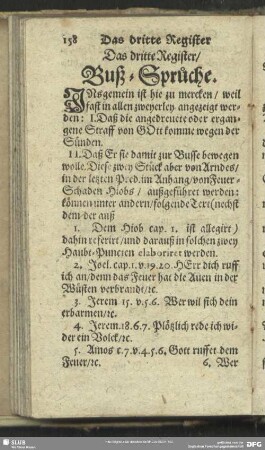 158 Das dritte Register
Das dritte Register/
Buß-Sprüche.
INsgemein ist hie zu mercken / weil
fast in allen zweyerley angezeigt wer-
den: I. Daß die angedreuete oder ergan-
gene Straff von GOtt komme wegen der
Sünden.
II. Daß Er sie damit zur Busse bewegen
wolle. Diese zwey Stück aber von Arndes/
in der letzten Pred. im Anhang/ von Feuer-
Schaden Hiobs / außgeführet werden:
können unter andern/ folgende Text (nechst
dem der auß
1. Dem Hiob cap. 1. ist allegirt)
dahin referirt/ und darauß in solchen zwey
Haubt-Puncten elaboriret werden.
2. Joel. cap. 1. v. 19. 20. HErr dich ruff
ich an/ denn das Feuer hat die Auen in der
Wüsten verbrandt/ ꝛc.
3. Jerem 15. v. 5. 6. Wer wil sich dein
erbarmen/ ꝛc.
4. Jerem. 18. 6. 7. Plötzlich rede ich wi-
der ein Volck/ ꝛc.
5. Amos c. 7. v. 4. 5. 6. Gott ruffet dem
Feuer/ ꝛc. 6. Wer
SLUB
DFG